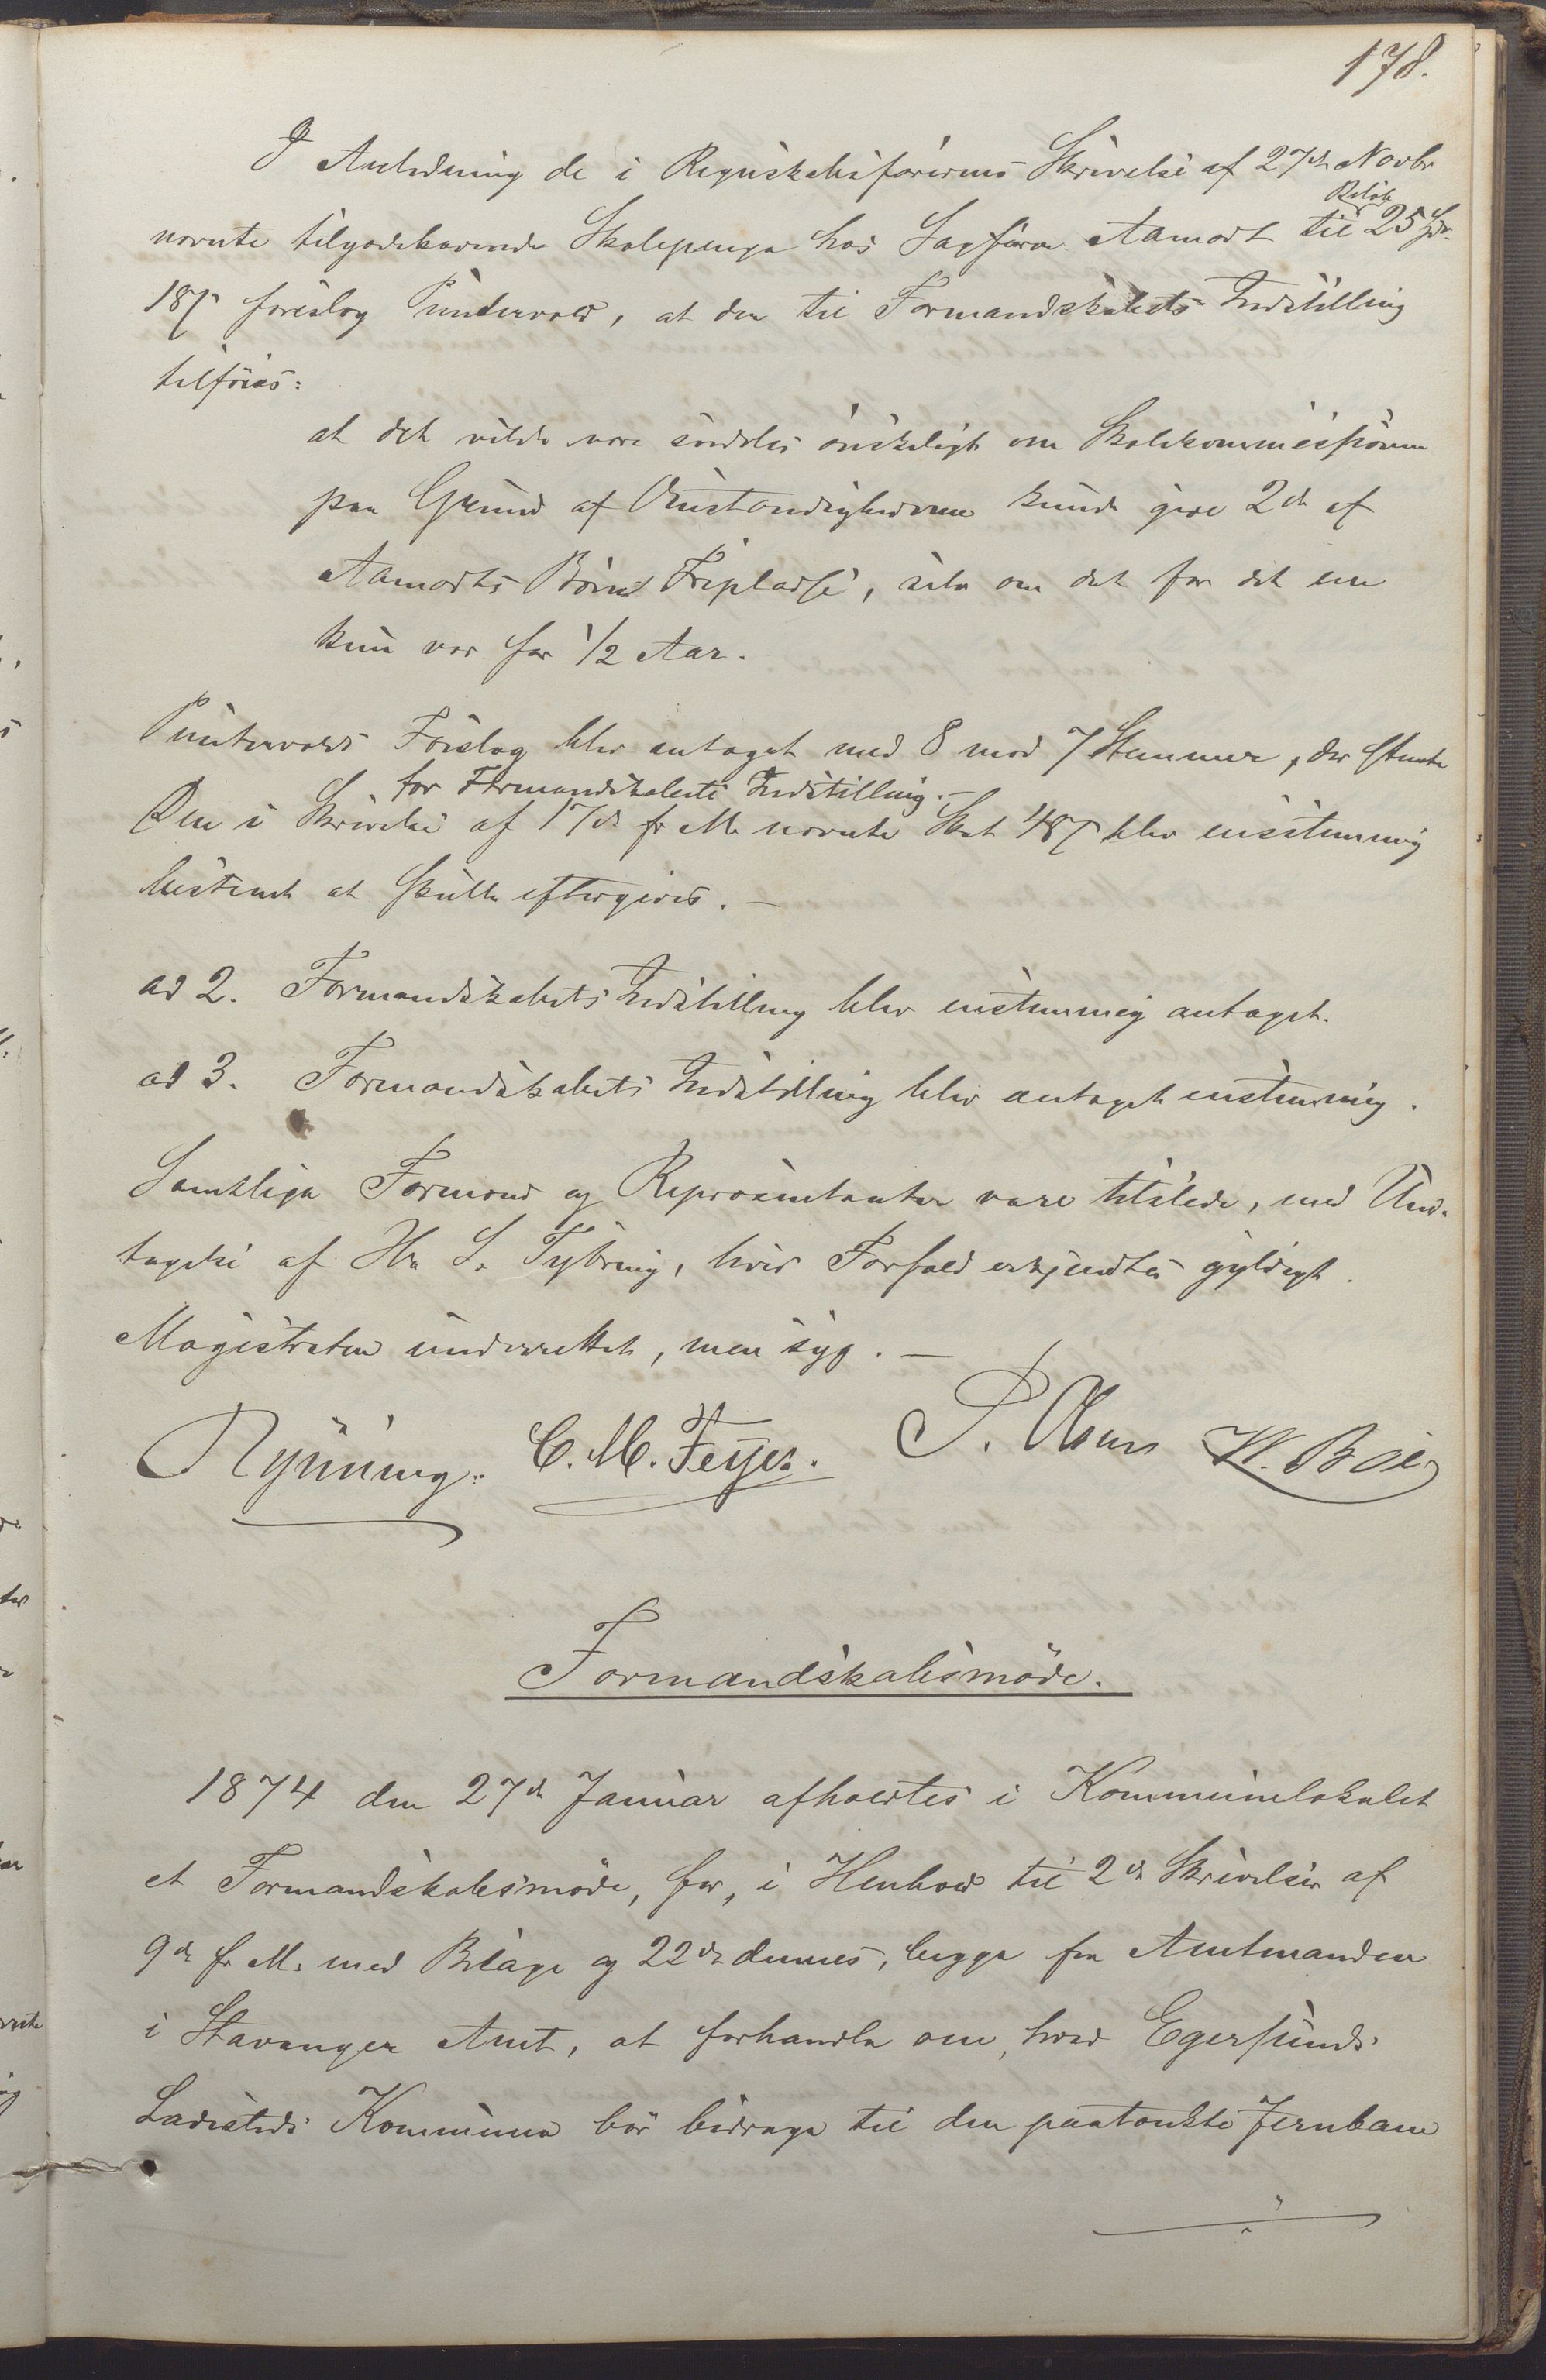 178.
I Anledning de i Regnskabsførerens Skrivelse af 27de Novbr
nævnte tilgodehavende Skolepenge hos Sagfører Aamodt Beløb til 25 Spd.
18β foreslog Puntervold, at der til Formandskabets Indstilling
tilføies:
at det vilde være særdeles ønskeligt om Skolekommissionen
paa Grund af Omstændighederne kunde give 2de af
Aamodts Børn Fripladse, selv om det for det ene
kun var for 1/2 Aar.
Puntervolds Forslag blev antaget med 8 mod 7 Stemmer, der stemte
for Formandskabets Indstilling.-
Den i Skrivelse af 17de f. M. nævnte Skat 48β blev eenstemmig
bestemt at skulle eftergives. -
ad 2. Formandskabets Indstilling blev enstemmig antaget.
ad 3. Formandskabets Indstilling blev antaget enstemmig.
Samtlige Formænd og Repræsentanter vare tilstede, med Und-
tagelse af Hr. S. Tybring, hvis Forfald erkjendtes gyldigt.
Magistraten underrettet, men syg. -
Rynning. C. M. Feyer. P. Olsen H. Bøe
Formandskabsmøde.
1874 den 27de Januar afholdtes i Kommunelokalet
et Formandskabsmøde, for, i Henhold til 2de Skrivelser af
9de f. M. med Bilage og 22de dennes, begge fra Amtmanden
i Stavanger Amt, at forhandle om, hvad Egersunds
Ladesteds Kommune bør bidrage til den paatænkte Jernbane